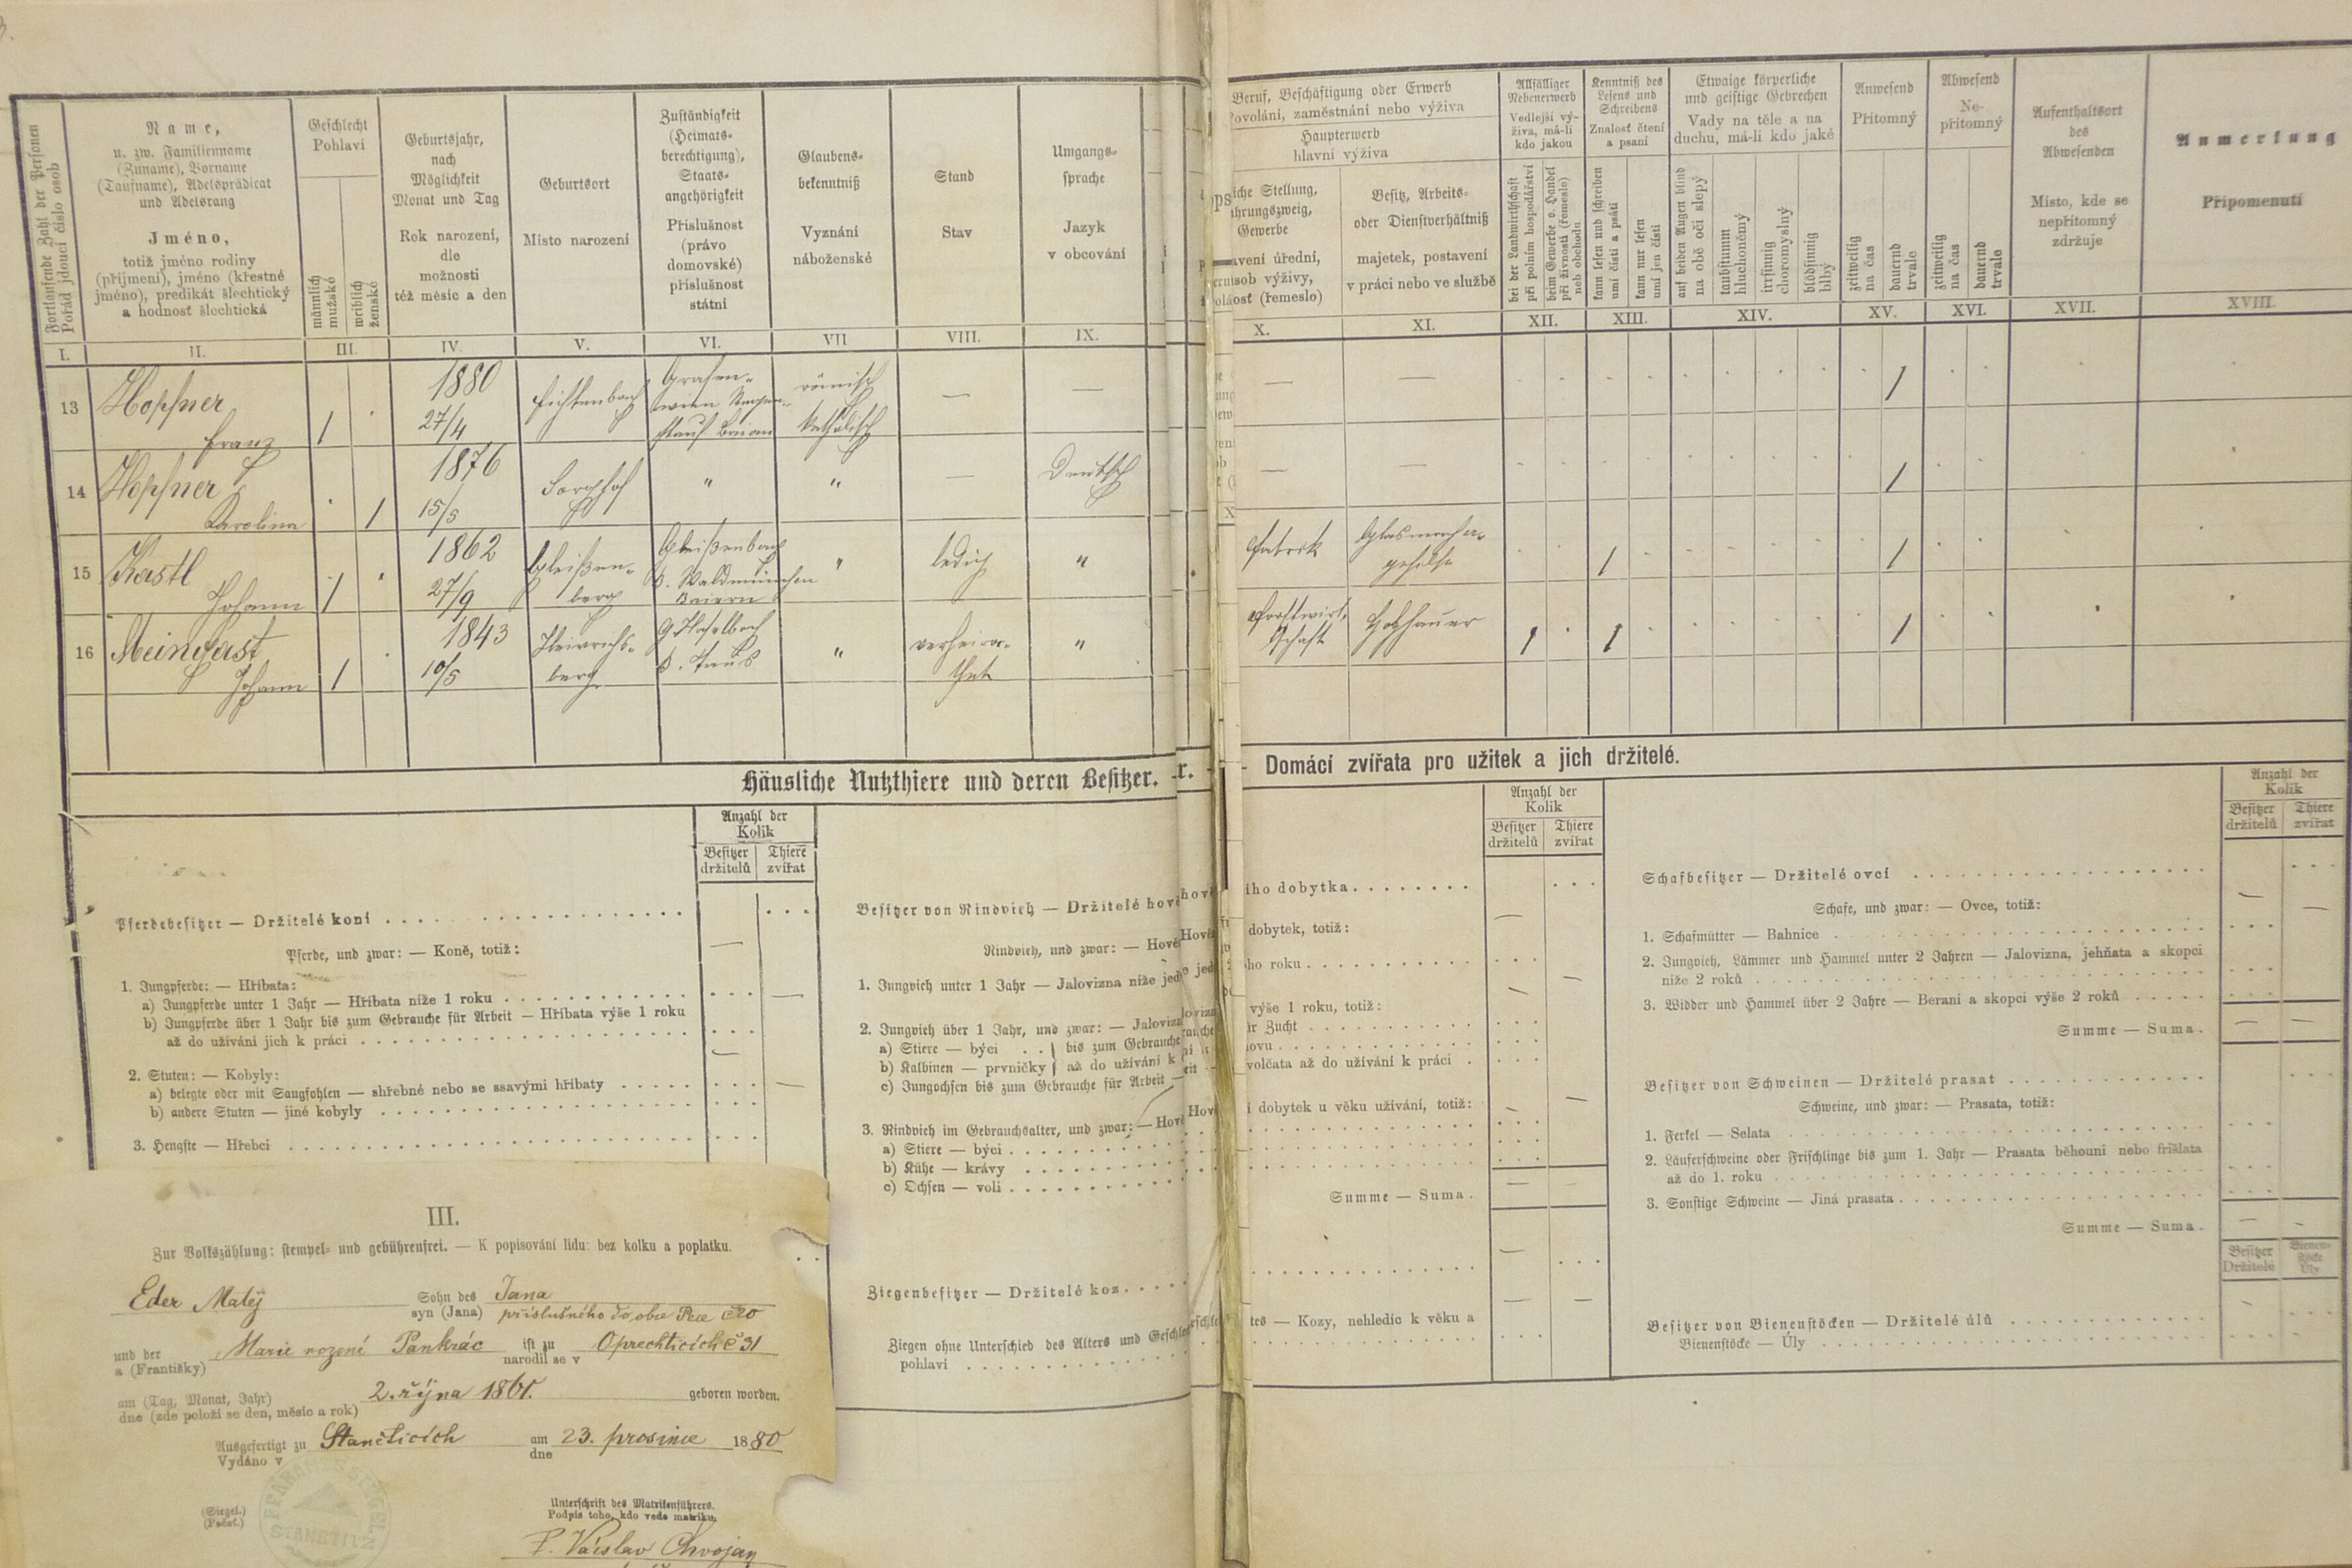 Fortlaufende Zahl der Personen
Pořád jdoucí číslo osob
Name,
u. zw. Familienname
(Zuname), Vorname
(Taufname), Adelsprädicat
und Adelsrang
Jméno,
totiž jméno rodiny
(příjmení), jméno (křestné
jméno), predikát šlechtický
a hodnosť šlechtická
Geschlecht
Pohlaví
männlich
mužské
weiblich
ženské
Geburtsjahr,
nach
Möglichkeit
Monat und Tag
Rok narození,
dle
možnosti
též měsíc a den
Geburtsort
Místo narození
Zuständigkeit
(Heimats-
berechtigung),
Staats-
angehörigkeit
Příslušnost
(právo
domovské)
příslušnost
státní
Glaubens-
bekenntniß
Vyznání
náboženské
Stand
Stav
Umgangs-
sprache
Jazyk
v obcování
Beruf, Beschäftigung oder Erwerb
Povolání, zaměstnání nebo výživa
Haupterwerb
hlavní výživa
Besitz, Arbeits-
oder Dienstverhältniß
majetek, postavení
v práci nebo ve službě
Allfälliger
Nebenerwerb
Vedlejší vý-
živa, má-li
kdo jakou
bei der Landwirthschaft
při polním hospodářství
beim Gewerbe o. Handel
při živnosti (řemeslo)
neb obchodu
Kenntniß des
Lesens und
Schreibens
Znalosť čtení
a psaní
kann lesen und schreiben
umí čísti a psáti
kann nur lesen
umí jen čísti
Etwaige körperliche
und geistige Gebrechen
Vady na těle a na
duchu, má-li kdo jaké
auf beiden Augen blind
na obě oči slepý
taubstumm
hluchoněmý
irrsinnig
choromyslný
blödsinnig
blbý
Anwesend
Přítomný
zeitweilig
na čas
dauernd
trvale
Abwesend
Ne-
přítomný
zeitweilig
na čas
dauernd
trvale
Aufenthaltsort
des
Abwesenden
Místo, kde se
nepřítomný
zdržuje
Anmerkung
Připomenutí
I. II. III. IV. V. VI. VII VIII. IX. X. XI. XII. XIII. XIV. XV. XVI. XVII. XVIII.
13 Hopfner 1880 Fichtenbach römisch
Franz 1 27/4 katholisch 1
14 Hopfner 1876 " " — Deutsch
Karolina 1 15/5 1
15 Kastl 1862 Gleißen- " ledig "
Johann 1 27/9 berg B. Waldmünchen Baiern 1 1
16 1843 Heinrichs- " verheira- " Holzhauer
Johann 1 10/5 berg B. Taus thet 1 1 1
Häusliche Nutzthiere und deren Besitzer. — Domácí zvířata pro užitek a jich držitelé.
Anzahl der
Kolik
Besitzer
držitelů
Thiere
zvířat
Pferdebesitzer — Držitelé koní
Pferde, und zwar: — Koně, totiž:
1. Jungpferde: — Hříbata:
a) Jungpferde unter 1 Jahr — Hříbata níže 1 roku
b) Jungpferde über 1 Jahr bis zum Gebrauche für Arbeit — Hříbata výše 1 roku
až do užívání jich k práci
2. Stuten: — Kobyly:
a) belegte oder mit Saugfohlen — shřebné nebo se ssavými hříbaty
b) andere Stuten — jiné kobyly
3. Hengste — Hřebci
Besitzer von Rindvieh — Držitelé hově
Rindvieh, und zwar: — Hově
1. Jungvieh unter 1 Jahr — Jalovizna níže jed
2. Jungvieh über 1 Jahr, und zwar: — Jalovizn
a) Stiere — býci . . } bis zum Gebrauche
b) Kalbinen — prvničky } až do užívání k
c) Jungochsen bis zum Gebrauche für Arbeit —
3. Rindvieh im Gebrauchsalter, und zwar: — Hově
a) Stiere — býci
b) Kühe — krávy
c) Ochsen — voli
Ziegenbesitzer — Držitelé koz
Ziegen ohne Unterschied des Alters und Geschle
pohlaví
Anzahl der
Kolik
Besitzer
držitelů
Thiere
zvířat
ího dobytka
dobytek, totiž:
ho roku
výše 1 roku, totiž:
r Zucht
ovu
volčata až do užívání k práci
í dobytek u věku užívání, totiž:
Summe — Suma.
tes — Kozy, nehledíc k věku a
Anzahl der
Kolik
Besitzer
držitelů
Thiere
zvířat
Schafbesitzer — Držitelé ovcí
Schafe, und zwar: — Ovce, totiž:
1. Schafmütter — Bahnice
2. Jungvieh, Lämmer und Hammel unter 2 Jahren — Jalovizna, jehňata a skopci
níže 2 roků
3. Widder und Hammel über 2 Jahre — Berani a skopci výše 2 roků
Summe — Suma.
Besitzer von Schweinen — Držitelé prasat
Schweine, und zwar: — Prasata, totiž:
1. Ferkel — Selata
2. Läuferschweine oder Frischlinge bis zum 1. Jahr — Prasata běhouni nebo frišlata
až do 1. roku
3. Sonstige Schweine — Jiná prasata
Summe — Suma.
Besitzer
Držitelé
Bienen-
stöcke
Úly
Besitzer von Bienenstöcken — Držitelé úlů
Bienenstöcke — Úly
III.
Zur Volkszählung: stempel- und gebührenfrei. — K popisování lidu: bez kolku a poplatku.
Eder Matěj Sohn des Jana
syn (Jana) příslušného do obce Pece č 20
und der Marie rození Pankrác ist zu Oprechticích č 31
a (Františky) narodil se v
am (Tag, Monat, Jahr) 2. října geboren worden.
dne (zde položí se den, měsíc a rok)
Ausgefertigt zu Staněticích am 23. prosince 1880
Vydáno v dne
(Siegel.)
(Pečeť.)
Unterschrift des Matrikenführers.
Podpis toho, kdo vede matriku.
P. Václav Chvojan